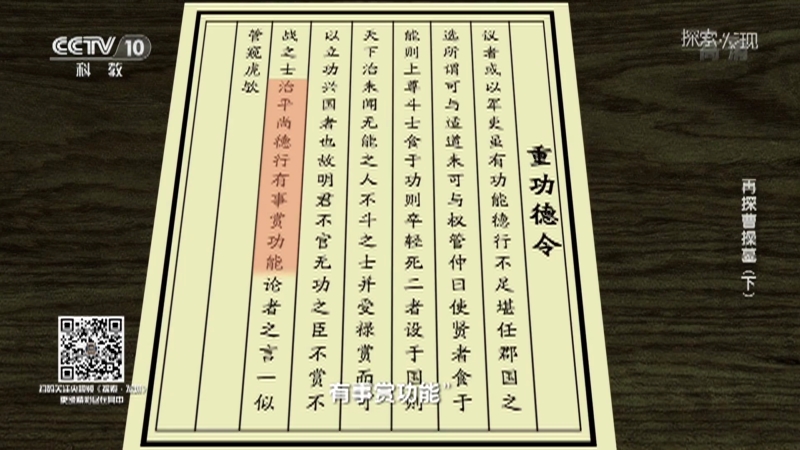 CCTV 10
科教
探索·发现
高清
再探曹操墓(下)
重功德令
议者或以军吏虽有功能德行不足堪任郡国之
选所谓可与适道未可与权管仲曰使贤者食于
能则上尊斗士食于功则卒轻死二者设于国则
天下治未闻无能之人不斗之士并受禄赏而可
以立功兴国者也故明君不官无功之臣不赏不
战之士治平尚德行有事赏功能论者之言一似
管窥虎欤
有事赏功能"